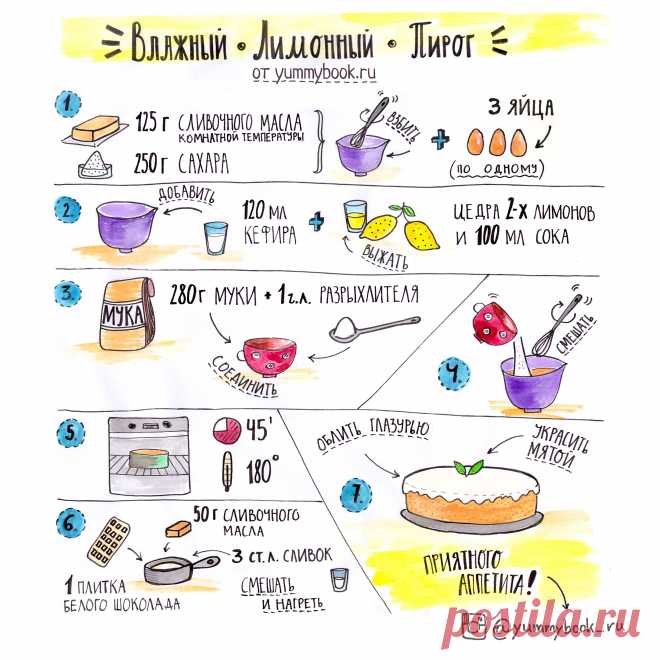 Влажный • Лимонный • Пирог
от yummybook.ru
1.
125 г сливочного масла
комнатной температуры
250 г сахара
взбить
+
3 яйца
(по одному)
2.
добавить
120 мл
кефира
+
выжать
цедра 2-х лимонов
и 100 мл сока
3.
МУКА
280 г муки + 1 ч.л. разрыхлителя
соединить
4.
смешать
5.
45'
180°
6.
50 г сливочного
масла
3 ст.л. сливок
1 плитка
белого шоколада
смешать
и нагреть
7.
облить глазурью
украсить
мятой
приятного
аппетита!
@yummybook_ru
postila.ru